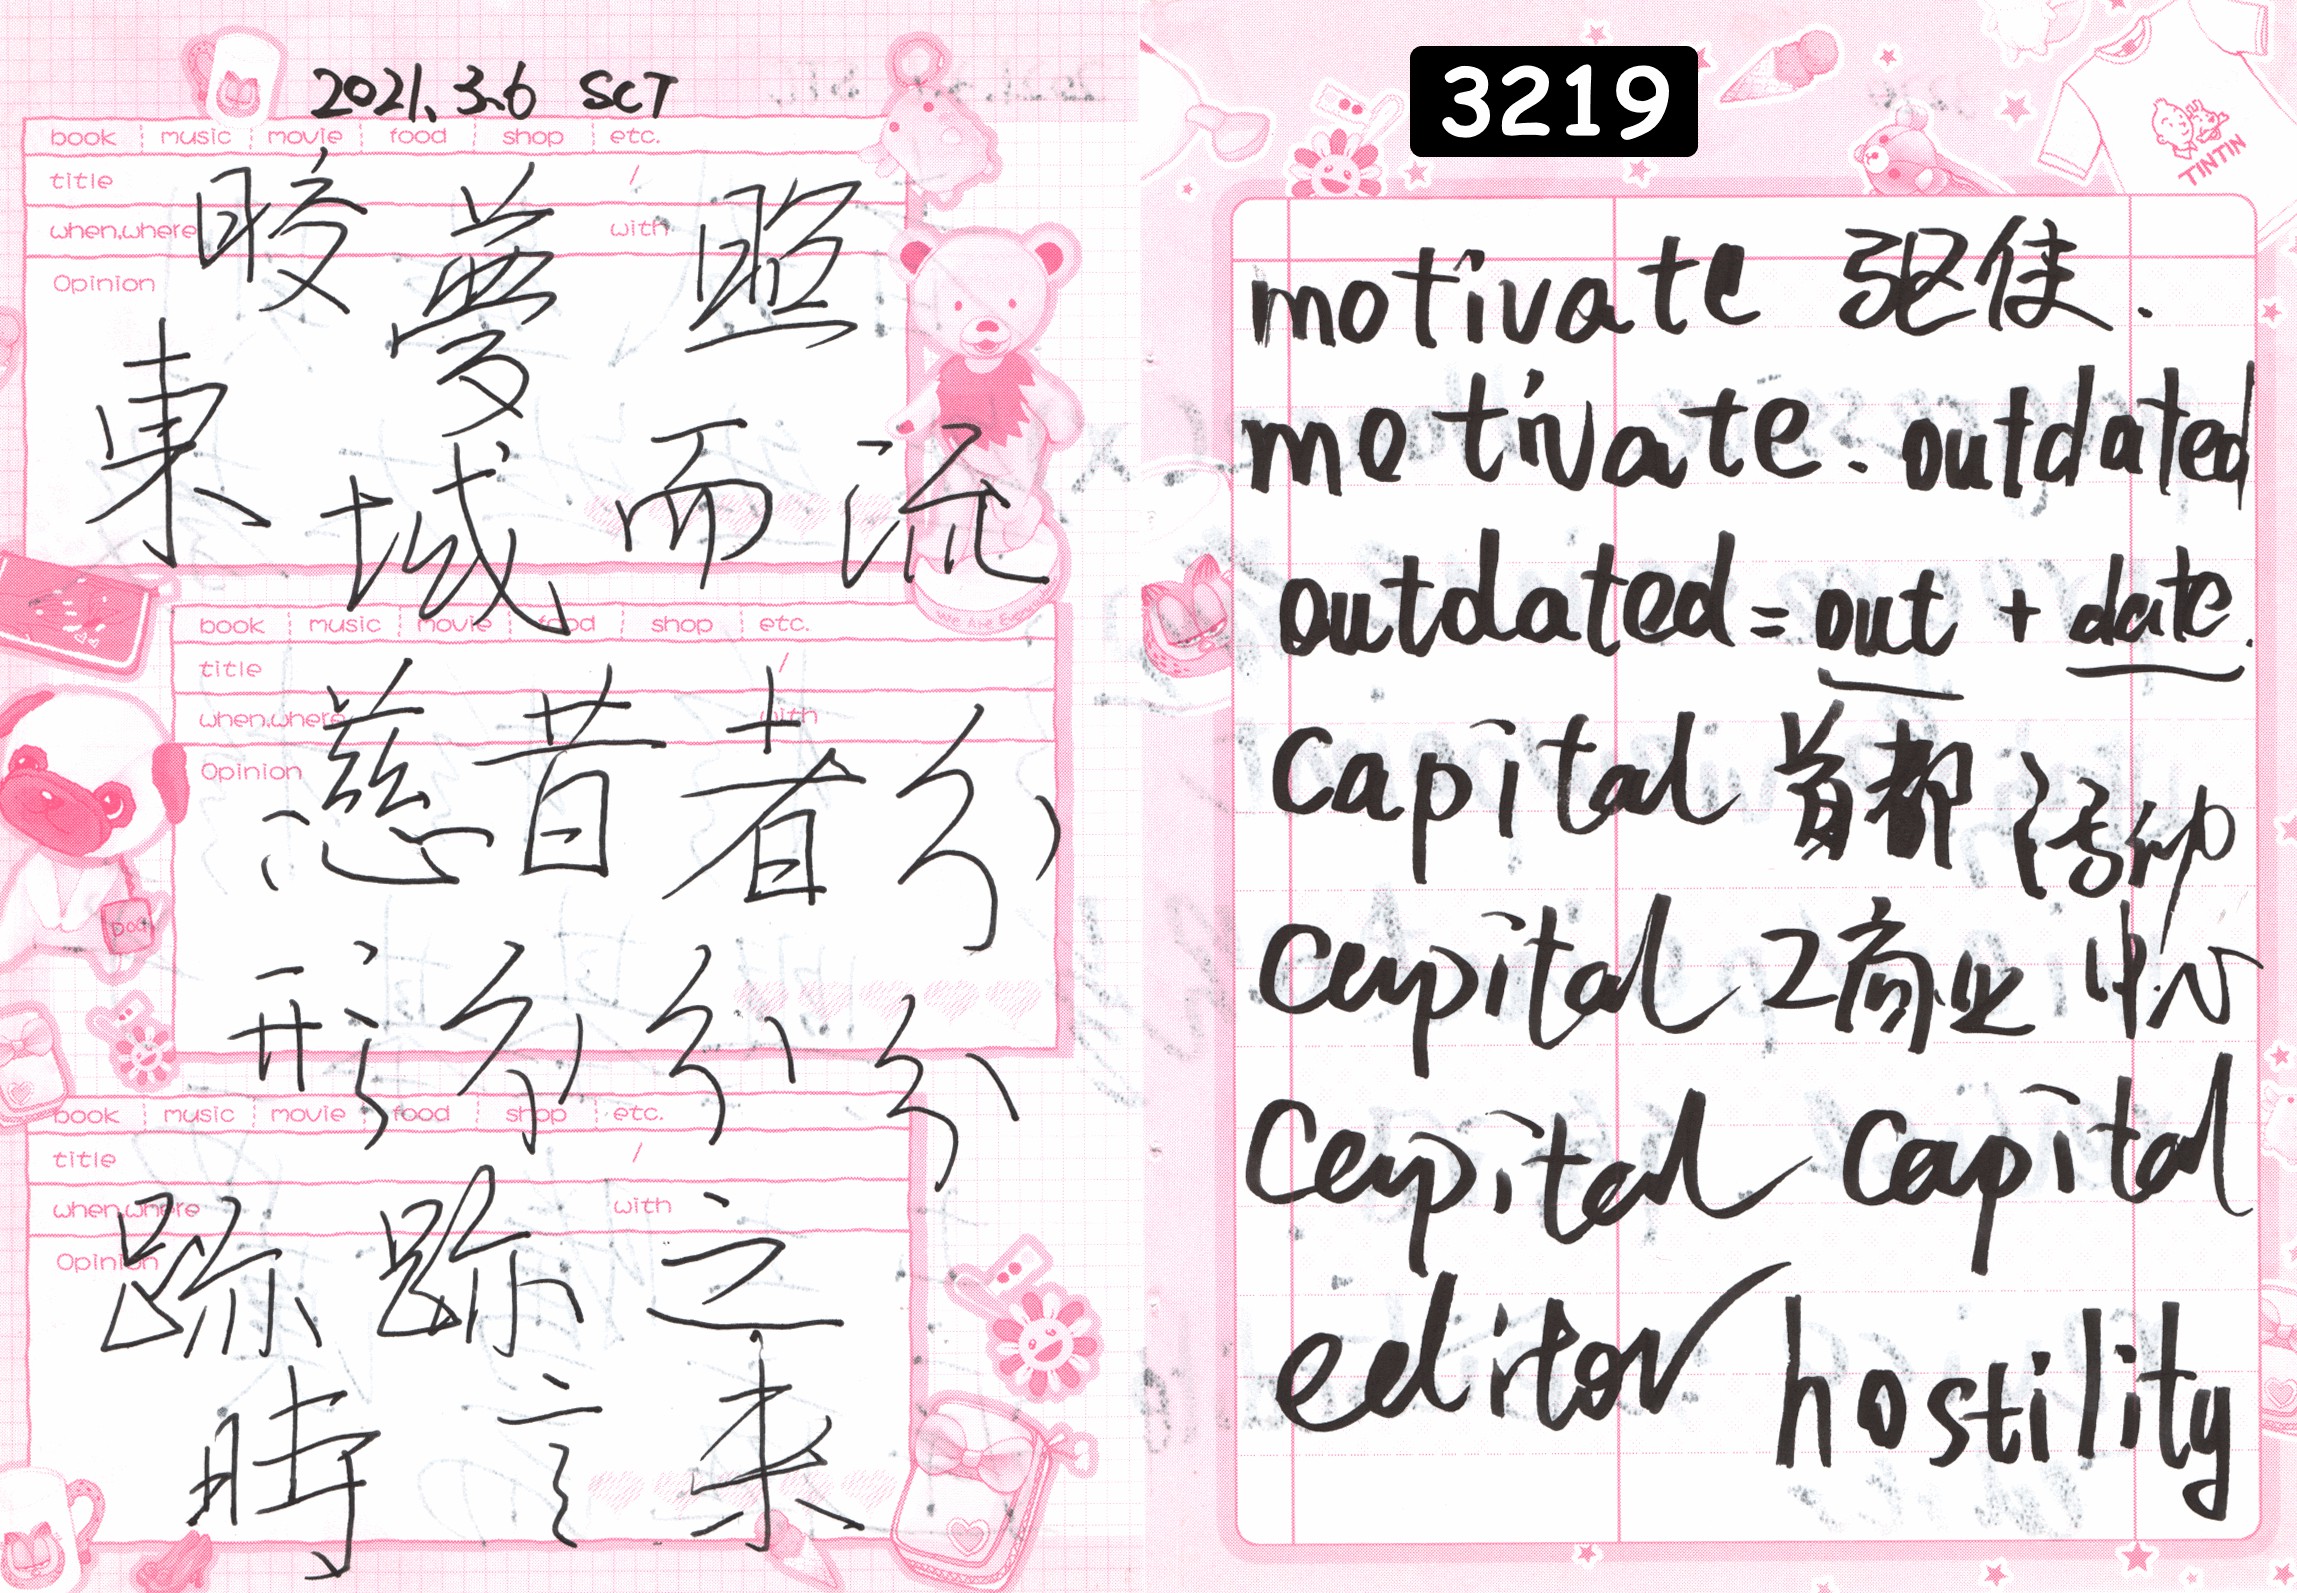 2021.3.6 SCT
book music movie food shop etc.
title /
when,where with
Opinion
晈 夢 照
東 城 而 流
book music movie food shop etc.
title /
when,where with
Opinion
慈 昔 者
形
book music movie food shop etc.
title /
when,where with
Opinion
跡 跡 之
時 言 来
DOG
3219
TINTIN
motivate 驱使.
motivate. outdated
outdated = out + date.
Capital 首都
Capital 2商业 中心
Capital Capital
editor hostility